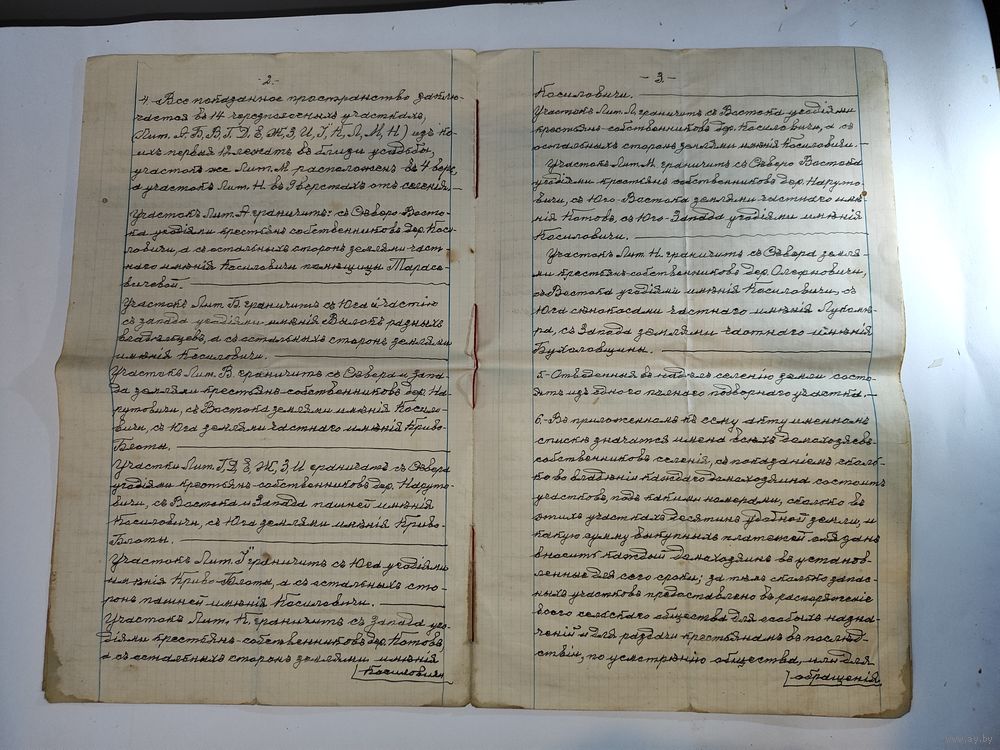 -2.-
4. Все показанное пространство заклю-
чается въ 14 черезполосныхъ участкахъ,
(Лит. А, Б, В, Г, Д, Е, Ж, З, И, Ї, К, Л, М, Н) изъ ко-
ихъ первые 12 лежатъ въ близи усадьбы,
участокъ же Лит. М расположенъ въ 4 верс.
а участокъ Лит. Н въ 9 верстахъ отъ селенія.-
Участокъ Лит. А граничитъ: съ Северо-Восто-
ка угодіями крестьянъ собственниковъ дер. Коси-
ловичи, а съ остальныхъ сторонъ землями част-
наго имѣнія Косиловичи помѣщицы Тарасе-
вичевой.
Участокъ Лит Б. граничитъ съ Юга и частію
съ запада угодіями имѣнія Вылокъ разныхъ
владѣльцевъ, а съ остальныхъ сторонъ землями
имѣнія Косиловичи.
Участокъ Лит. В. граничитъ съ Севера и запа-
да землями крестьянъ-собственниковъ дер. На-
рутовичи, съ Востока землями имѣнія Косило-
вичи, съ Юга землями частнаго имѣнія Криво-
Блоты.
Участки Лит. Г, Д, Е, Ж, З, И граничатъ съ Севера
угодіями крестьянъ-собственниковъ дер. Наруто-
вичи, съ Востока и Запада пашней имѣнія
Косиловичи, съ Юга землями имѣнія Криво-
Блоты.
Участокъ Лит. Ї граничитъ съ Юга угодіями
имѣнія Криво-Блота, а съ остальныхъ сто-
ронъ пашней имѣнія Косиловичи.
Участокъ Лит. К. граничитъ съ Запада уго-
діями крестьянъ-собственниковъ дер. Котовъ,
а съ остальныхъ сторонъ землями имѣнія
Косиловичи
-3.-
Косиловичи.
Участокъ Лит. Л. граничитъ съ Востока угодіями
крестьянъ-собственниковъ дер. Косиловичи, а съ
остальныхъ сторонъ землями имѣнія Косиловичи.-
Участокъ Лит. М. граничитъ съ Северо Востока
угодіями крестьянъ собственниковъ дер. Наруто-
вичи, съ Юго-Востока землями частнаго имѣ-
нія Котовъ, съ Юго-Запада угодіями имѣнія
Косиловичи.
Участокъ Лит. Н. граничитъ съ Севера земля-
ми крестьянъ-собственниковъ дер. Олехновичи,
съ Востока угодіями имѣнія Косиловичи, съ
Юга сѣнокосами частнаго имѣнія Лукомъ-
ра, съ Запада землями частнаго имѣнія
Бухаловщины.
5. Отведенныя въ надѣлъ селенію земли состо-
ятъ изъ одного полнаго подворнаго участка.-
6. Въ приложенномъ къ сему акту именномъ
спискѣ значатся имена всѣхъ домохозяевъ
собственниковъ селенія, съ показаніемъ сколь-
ко во владѣніи каждаго домохозяина состоитъ
участковъ, подъ какими номерами, сколько въ
этихъ участкахъ десятинъ удобной земли, и
какую сумму выкупныхъ платежей обязанъ
вносить каждый домохозяинъ въ установ-
ленные для сего сроки; затѣмъ сколько запас-
ныхъ участковъ предоставлено въ распоряженіе
всего сельскаго общества для особыхъ назна-
ченій и для раздачи крестьянамъ въ послѣд-
ствіи, по усмотрѣнію общества, или для
обращенія
www.ay.by